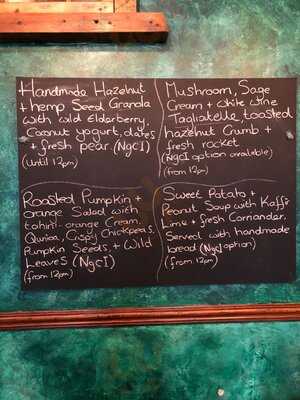 Handmade Hazelnut
+ hemp Seed Granola
with wild Elderberry,
Coconut yogurt, dates
+ fresh pear (NgcI)
(until 12pm)
Mushroom, Sage
Cream + white wine
Tagliatelle, toasted
hazelnut Crumb +
fresh rocket
(NgcI option available)
(from 12pm)
Roasted Pumpkin +
orange Salad with
tahini-orange Cream,
Quinoa, Crispy Chickpeas,
Pumpkin Seeds, + Wild
Leaves (NgcI)
(from 12pm)
Sweet Potato +
Peanut Soup with Kaffir
Lime + fresh Corriander.
Served with handmade
bread (NgcI option)
(from 12pm)